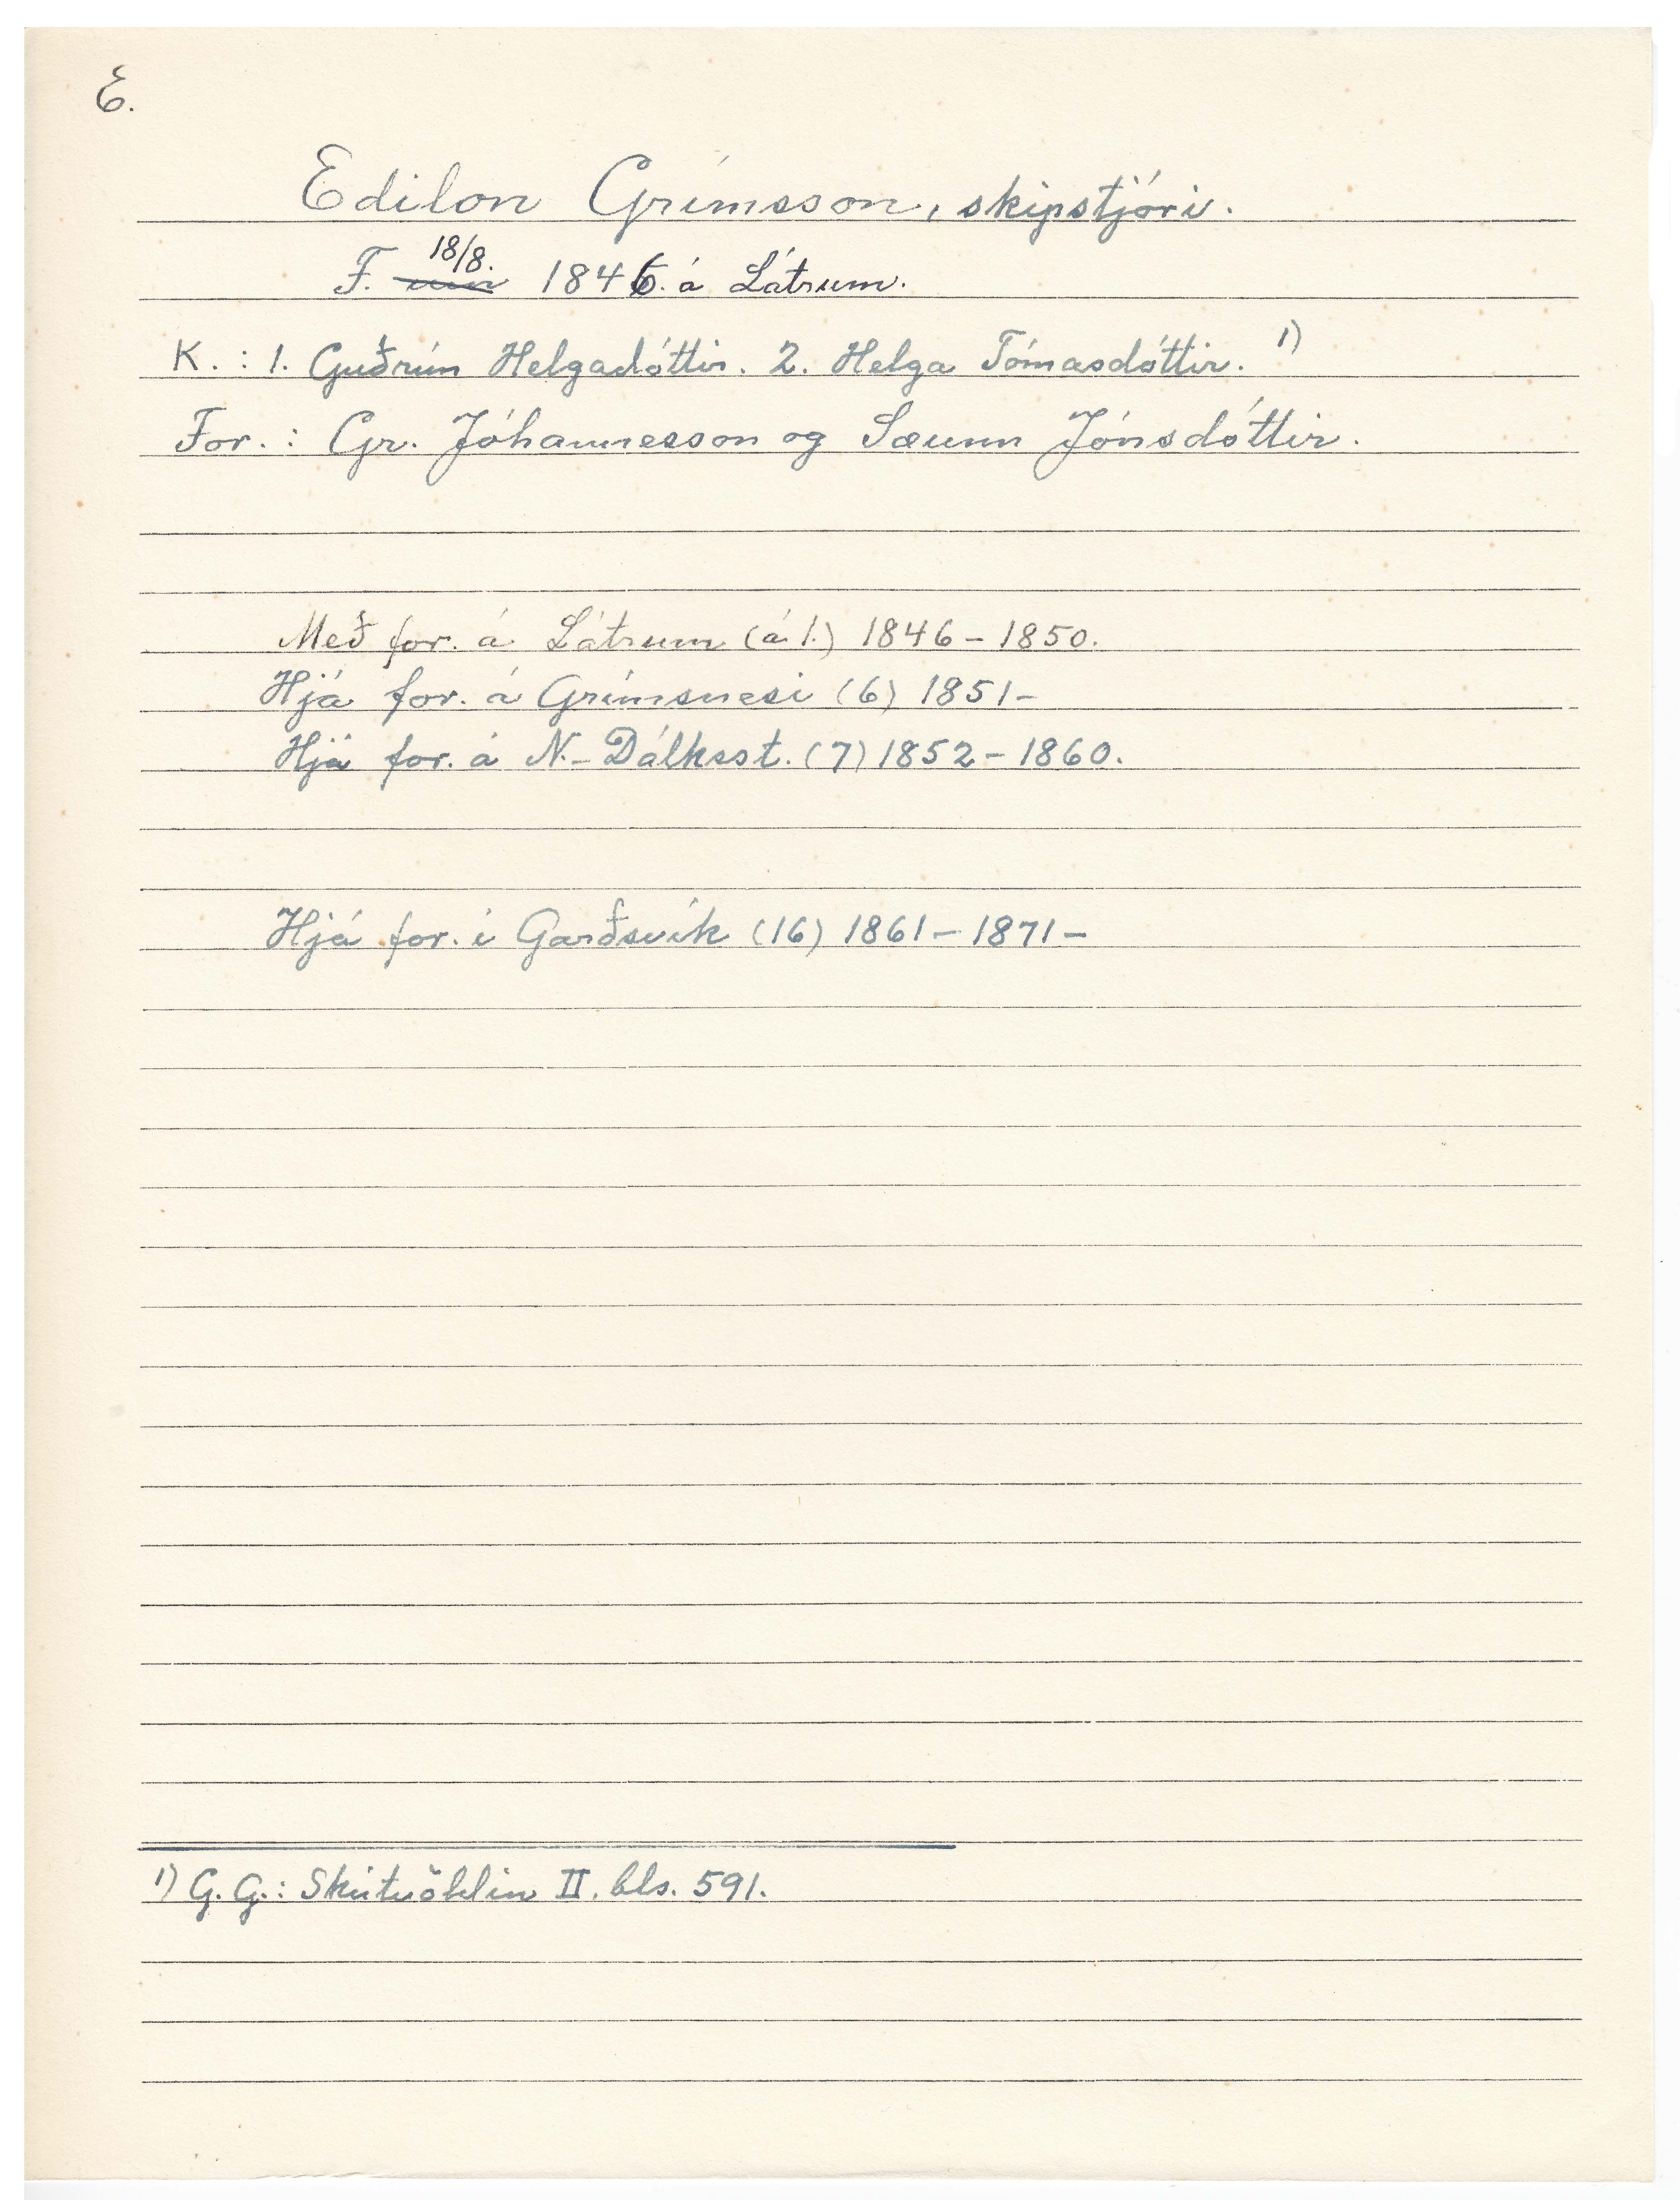 E.
Edilon Grímsson, skipstjóri.
18/8.
F. 1846. á Látrum.
K. : 1. Guðrún Helgadóttir. 2. Helga Tómasdóttir. 1)
For. : Gr. Jóhannesson og Sæunn Jónsdóttir.
Með for. á Látrum (á 1.) 1846 - 1850.
Hjá for. á Grímsnesi (6) 1851 -
Hjá for. á N. - Dálksst. (7) 1852 - 1860.
Hjá for. í Garðsvík (16) 1861 - 1871 -
1) G. G.: Skútuöldin II. bls. 591.